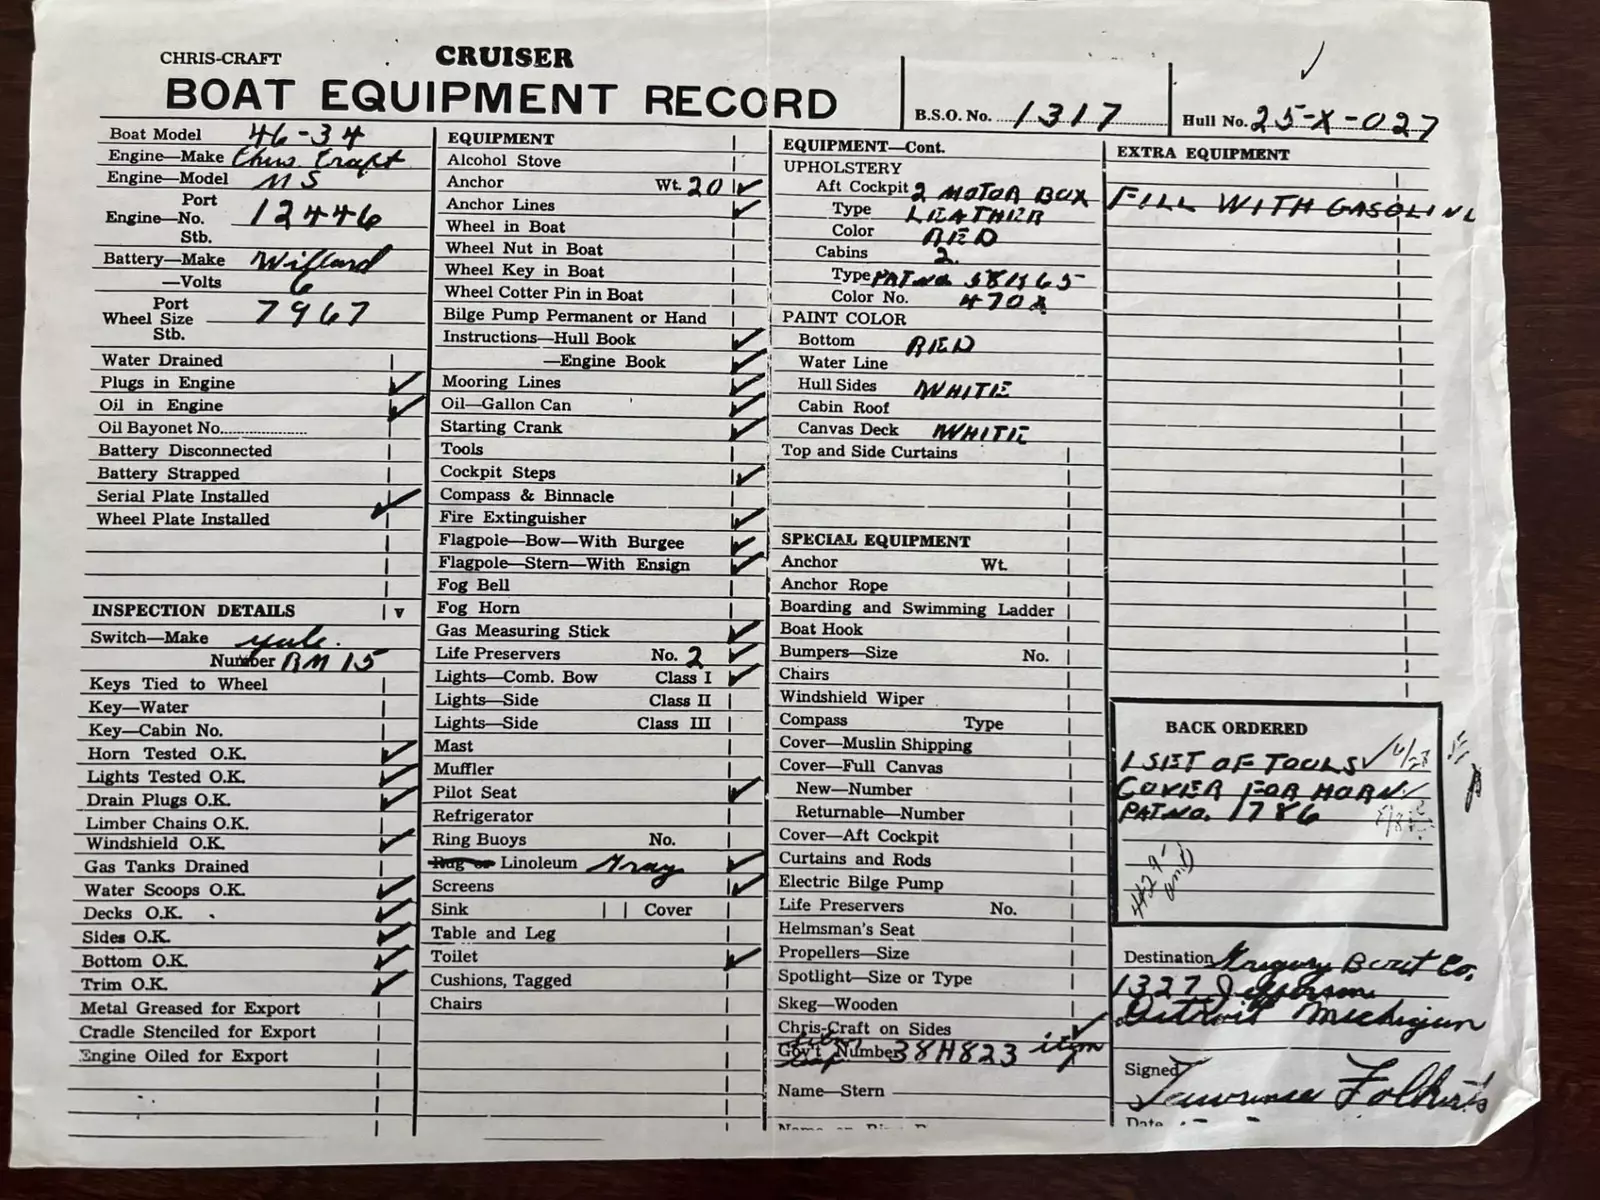 CHRIS-CRAFT
CRUISER
BOAT EQUIPMENT RECORD
B.S.O. No. 1317
Hull No. 25-X-027
Boat Model 46-34
Engine—Make Chris Craft
Engine—Model MS
Port
Engine—No. 12446
Stb.
Battery—Make Willard
—Volts 6
Port
Wheel Size 7967
Stb.
Water Drained
Plugs in Engine ✓
Oil in Engine ✓
Oil Bayonet No.
Battery Disconnected
Battery Strapped
Serial Plate Installed ✓
Wheel Plate Installed
INSPECTION DETAILS v
Switch—Make Yale.
Number RM 15
Keys Tied to Wheel
Key—Water
Key—Cabin No.
Horn Tested O.K. ✓
Lights Tested O.K. ✓
Drain Plugs O.K. ✓
Limber Chains O.K.
Windshield O.K. ✓
Gas Tanks Drained
Water Scoops O.K. ✓
Decks O.K. ✓
Sides O.K. ✓
Bottom O.K. ✓
Trim O.K. ✓
Metal Greased for Export
Cradle Stenciled for Export
Engine Oiled for Export
EQUIPMENT
Alcohol Stove
Anchor Wt. 20 ✓
Anchor Lines ✓
Wheel in Boat
Wheel Nut in Boat
Wheel Key in Boat
Wheel Cotter Pin in Boat
Bilge Pump Permanent or Hand
Instructions—Hull Book ✓
—Engine Book ✓
Mooring Lines ✓
Oil—Gallon Can ✓
Starting Crank ✓
Tools
Cockpit Steps ✓
Compass & Binnacle
Fire Extinguisher ✓
Flagpole—Bow—With Burgee ✓
Flagpole—Stern—With Ensign ✓
Fog Bell
Fog Horn
Gas Measuring Stick ✓
Life Preservers No. 2 ✓
Lights—Comb. Bow Class I ✓
Lights—Side Class II
Lights—Side Class III
Mast
Muffler
Pilot Seat ✓
Refrigerator
Ring Buoys No.
Rug or Linoleum Gray ✓
Screens ✓
Sink Cover
Table and Leg
Toilet ✓
Cushions, Tagged
Chairs
EQUIPMENT—Cont.
UPHOLSTERY
Aft Cockpit 2 MOTOR BOX
Type LEATHER
Color RED
Cabins 2
Type PAT NO. 38H65
Color No. 470X
PAINT COLOR
Bottom RED
Water Line
Hull Sides WHITE
Cabin Roof
Canvas Deck WHITE
Top and Side Curtains
SPECIAL EQUIPMENT
Anchor Wt.
Anchor Rope
Boarding and Swimming Ladder
Boat Hook
Bumpers—Size No.
Chairs
Windshield Wiper
Compass Type
Cover—Muslin Shipping
Cover—Full Canvas
New—Number
Returnable—Number
Cover—Aft Cockpit
Curtains and Rods
Electric Bilge Pump
Life Preservers No.
Helmsman's Seat
Propellers—Size
Spotlight—Size or Type
Skeg—Wooden
Chris-Craft on Sides ✓
Gov't Number 38H823 item
Name—Stern
EXTRA EQUIPMENT
FILL WITH GASOLINE
BACK ORDERED
1 SET OF TOOLS ✓
COVER FOR HORN ✓
PAT NO. 1786
Destination Gregory Boat Co.
1327 Jefferson
Detroit Michigan
Signed
Date